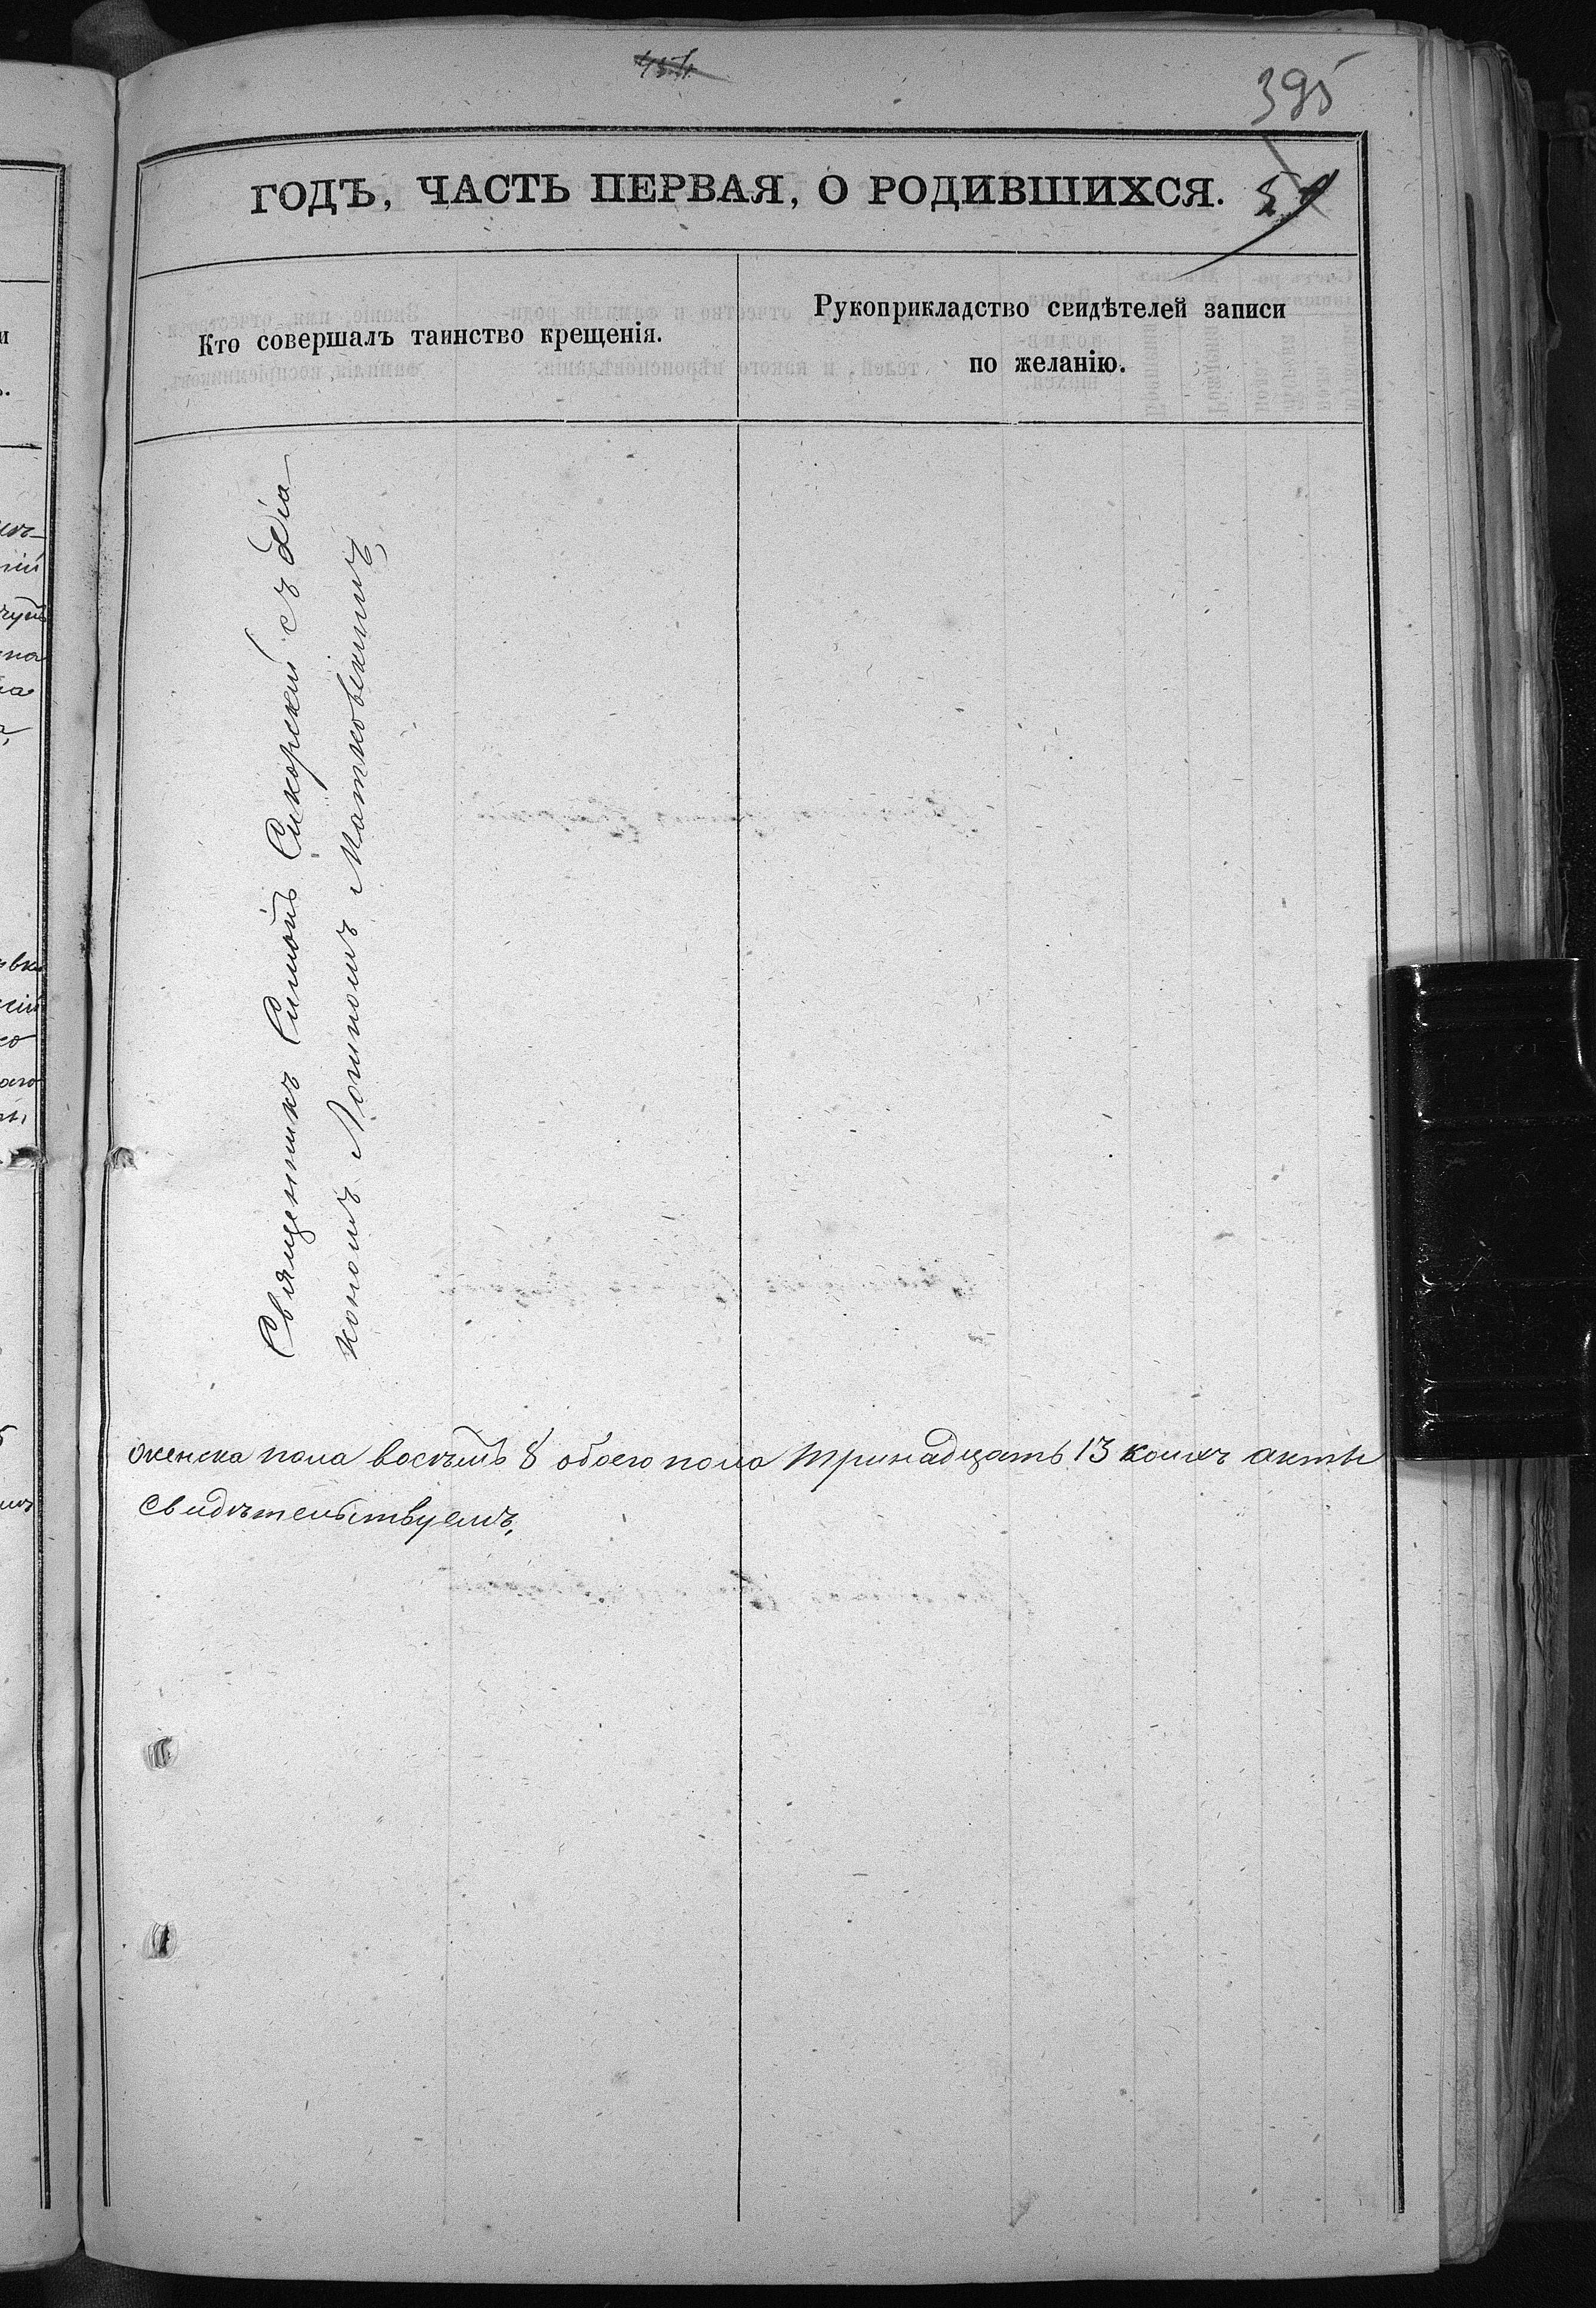 454
395
ГОДЪ, ЧАСТЬ ПЕРВАЯ, О РОДИВШИХСЯ.
Кто совершалъ таинство крещенія.
Рукоприкладство свидѣтелей записи
по желанію.
Священникъ Симонъ Сикорскій съ Діа-
кономъ Матковскимъ
женска пола восѣмь 8 обоего пола тринадцать 13 коихъ акты
свидѣтельствуемъ,